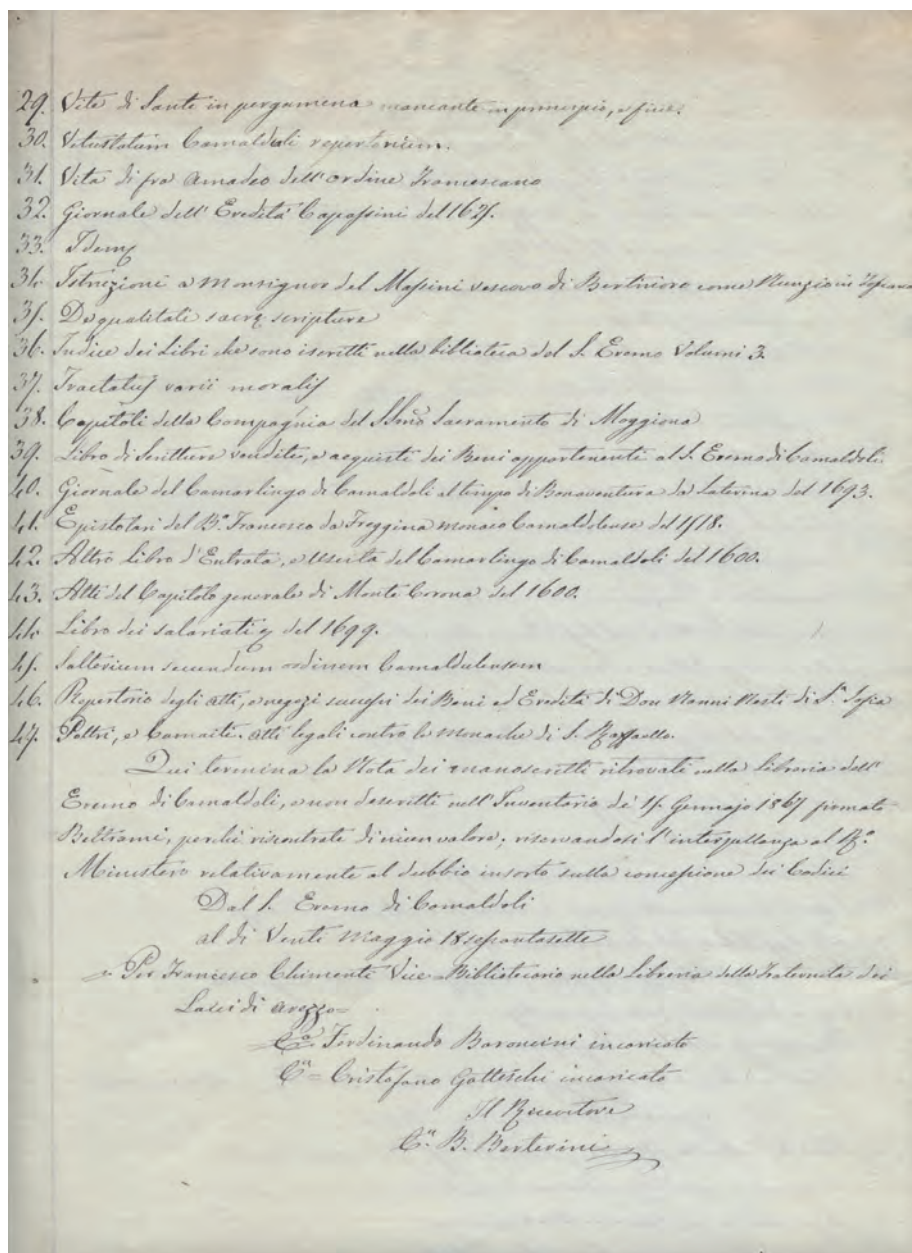 29. Vite di Santi in pergamena mancante in principio, e fine.
30. Vetustatum Camaldoli repertorium.
31. Vita di fra Amadeo dell'ordine Francescano
32. Giornale dell'Eredità Capassini del 162
33. Idem
34. Istruzioni a Monsignor del Massini vescovo di Bertinoro come Nunzio in Toscana
35. De qualitati sacrę scripture
36. Indice dei Libri che sono iscritti nella biblioteca del S. Eremo Volumi 3.
37. Tractatus varii moralis
38. Capitoli della Compagnia del SSmo Sacramento di Moggiona
39. Libro di Scritture vendite, e acquisti dei Beni appartenenti al S. Eremo di Camaldoli
40. Giornale del Camarlingo di Camaldoli al tempo di Bonaventura da Laterina del 1693.
41. Epistolari del B.o Francesco da Treggina monaco Camaldolense del 1518.
42. Altro Libro d'Entrata, e Uscita del Camarlingo di Camaldoli del 1600.
43. Atti del Capitolo generale di Monte Corona del 1600.
44. Libro dei salariati del 1699.
45. Salterium secundum ordinem Camaldulensem
46. Repertorio degli atti, e negozi successi dei Beni ed Eredità di Don Nanni Nesti di S.a Sofia
47. Poltri, e Camaiti. Atti legali contro le monache di S. Raffaello.
Qui termina la Nota dei manoscritti ritrovati nella Libreria dell'
Eremo di Camaldoli, e non descritti nell'Inventario de' 15 Gennajo 1867 firmato
Beltrami, perchè riscontrate di niun valore; riservandosi l'interpellanza al R.o
Ministero relativamente al dubbio insorto sulla concessione dei Codici
Dal S. Eremo di Camaldoli
al dì Venti Maggio 18sessantasette
= Per Francesco Chimenti Vice-Bibliotecario nella Libreria della Fraternita dei
Laici di Arezzo=
C.o Ferdinando Baroncini incaricato
C.o = Cristofano Galleschi incaricato
Il Ricevitore
C.o B. Berterini